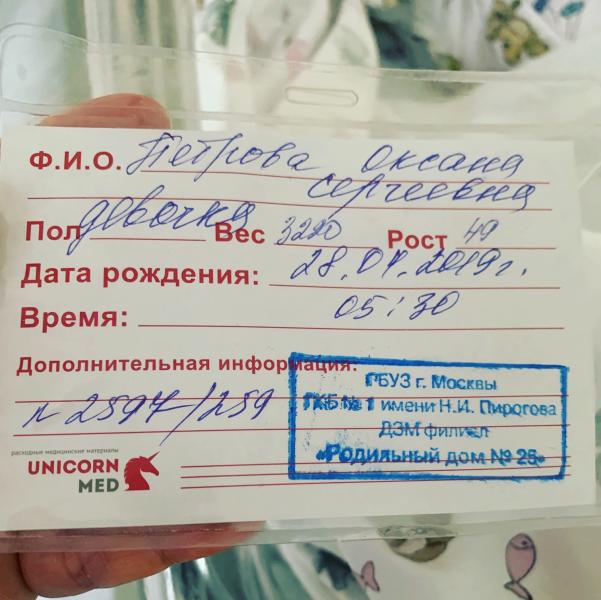 Ф.И.О. Петрова Оксана
Сергеевна
Пол девочка Вес 3220 Рост 49
Дата рождения: 28.04.2019г.
Время: 05:30
Дополнительная информация:
ГБУЗ г. Москвы
ГКБ № 1 имени Н.И. Пирогова
ДЗМ филиал
«Родильный дом № 25»
№ 2597/259
расходные медицинские материалы
UNICORN
MED